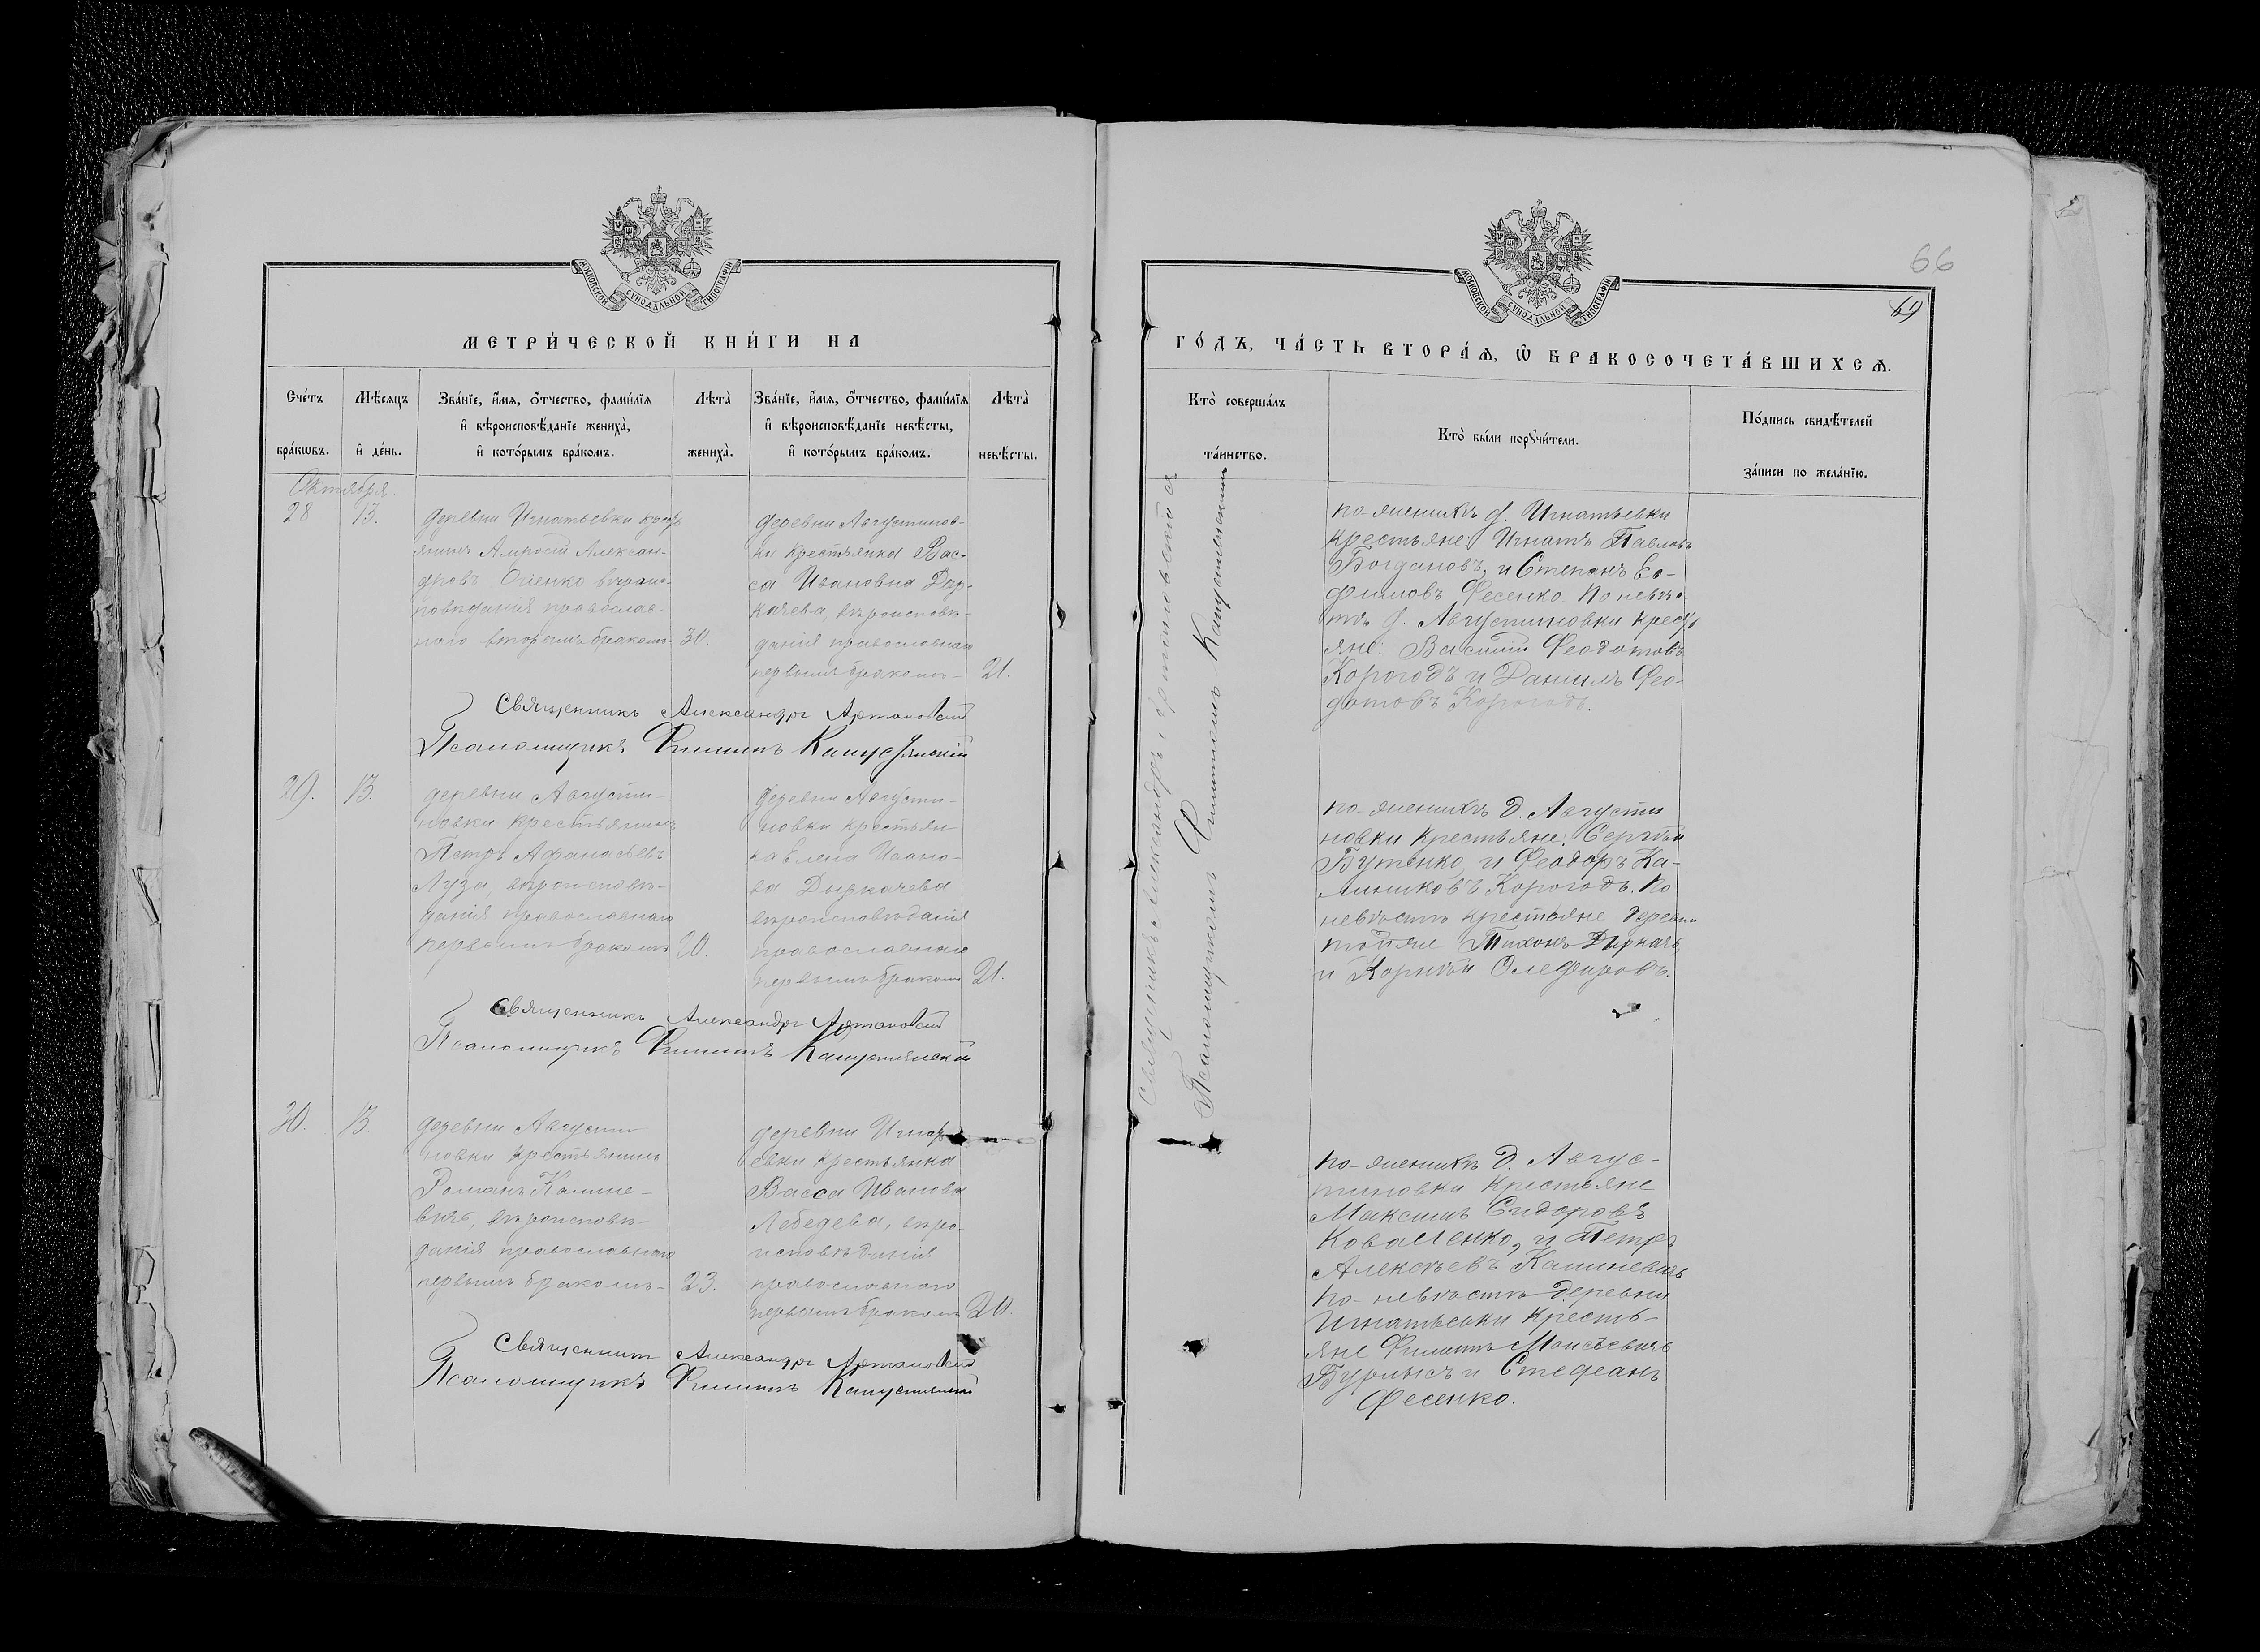 66
69
МОСКОВСКОЙ СѴНОДАЛЬНОЙ ТИПОГРАФІИ
МЕТРИ́ЧЕСКОЙ КНИ́ГИ НА
Сче́тъ бра́кѡвъ.
Мѣ́сяцъ и҆ де́нь.
Зва́нїе, и҆́мѧ, ѻ҆́тчество, фами́лїѧ
и҆ вѣроисповѣ́данїе жениха̀,
и҆ кото́рымъ бра́комъ.
Лѣта̀ жениха̀.
Зва́нїе, и҆́мѧ, ѻ҆́тчество, фами́лїѧ
и҆ вѣроисповѣ́данїе невѣ́сты,
и҆ кото́рымъ бра́комъ.
Лѣта̀ невѣ́сты.
Октября
28
13.
деревни Игнатьевки крест
янинъ Алексан-
дровъ вѣроис-
повѣданія православ-
наго вторымъ бракомъ-
30.
деревни Августинов-
ки крестьянка Вас-
са Ивановна Дыр-
качева, вѣроисповѣ-
данія православнаго
первымъ бракомъ-
21.
Священникъ Александръ Артановскій
Псаломщикъ Филиппъ Капустянскій
29.
13.
деревни Августи-
новки крестьянинъ
Петръ Афанасьевъ
Луза, вѣроисповѣ-
данія православнаго
первымъ бракомъ
20.
деревни Августи-
новки крестьян-
ка Елена Ивано-
ва Дыркачева
вѣроисповѣданія
православнаго
первымъ бракомъ
21.
Священникъ Александръ Артановскій
Псаломщикъ Филиппъ Капустянскій
30.
13.
деревни Августи-
новки крестьянинъ
Романъ Калине-
вичъ, вѣроисповѣ-
данія православнаго
первымъ бракомъ-
23.
деревни Игнать
евки крестьянка
Васса Иванова
Лебедева, вѣро-
исповѣданія
православнаго
первымъ бракомъ
20.
Священникъ Александръ Артановскій
Псаломщикъ Филиппъ Капустянскій
МОСКОВСКОЙ СѴНОДАЛЬНОЙ ТИПОГРАФІИ
ГО́ДЪ, ЧА́СТЬ ВТОРА́Ѧ, Ѽ БРАКОСОЧЕТА́ВШИХСѦ.
Кто̀ соверша́лъ та́инство.
Кто̀ бы́ли порꙋчи́тели.
По́дпись свидѣ́телей за́писи по жела́нїю.
Священникъ Александръ Артановскій съ
Псаломщикомъ Филиппомъ Капустянскимъ
по-женихѣ д. Игнатьевки
крестьяне: Игнатъ Павловъ
Богдановъ, и Степанъ Ев-
фимовъ Фесенко. По невѣс-
тѣ д. Августиновки крест
яне: Василій Феодотовъ
Корогодъ и Даніилъ Фео-
дотовъ Корогодъ.
по-женихѣ д. Августи
новки крестьяне: Сергѣй
Бутенко, и Феодоръ Ка-
линиковъ Корогодъ. По
невѣстѣ крестьяне деревни
тойже Тихонъ Дыркачъ,
и Корнѣй Олефировъ.
по-женихѣ д. Авгус-
тиновки крестьяне
Максимъ Сидоровъ
Коваленко, и Петръ
Алексѣевъ Калиневичъ
по-невѣстѣ деревни
Игнатьевки кресть-
яне Филиппъ Моисѣевичъ
Бурлысъ и Стефанъ
Фесенко.